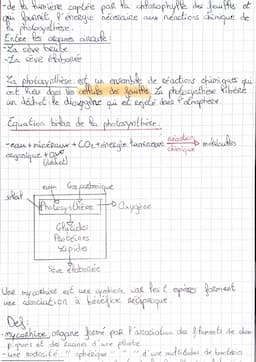 -de la lumière captée par la chlorophylle des feuilles et
qui fournit l'énergie nécessaire aux réactions chimique de
la photosynthèse.
Entre les organes circule:
-La sève brute
-La sève élaborée
La photosynthèse est un ensemble de réactions chimiques qui
ont lieu dans les cellules des feuilles. La photosynthèse libère
un déchet: le dioxygène qui est rejeté dans l'atmosphère.
Equation bilan de la photosynthèse:
-eau + minéraux + CO2 + énergie lumineuse réaction chimique molécules
organique +
(déchet)
eau Gaz carbonique
soleil
Photosynthèse Oxygène
Glucides
Protéines
Lipides
Sève élaborée
Une mycorhize est une symbiose car les 2 espèces forment
une association à bénéfice réciproque.
Def:
-mycorhize: organe formé par l'association des filaments de cham
pignons et des racines d'une plante.
-une nodosité: " sphérique " " d'une multitudes de bactéries